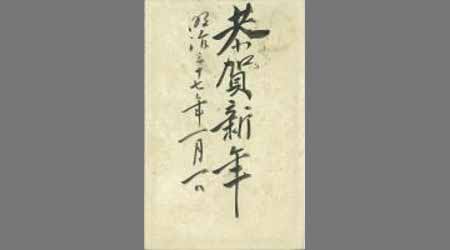 恭賀新年
明治三十七年一月一日